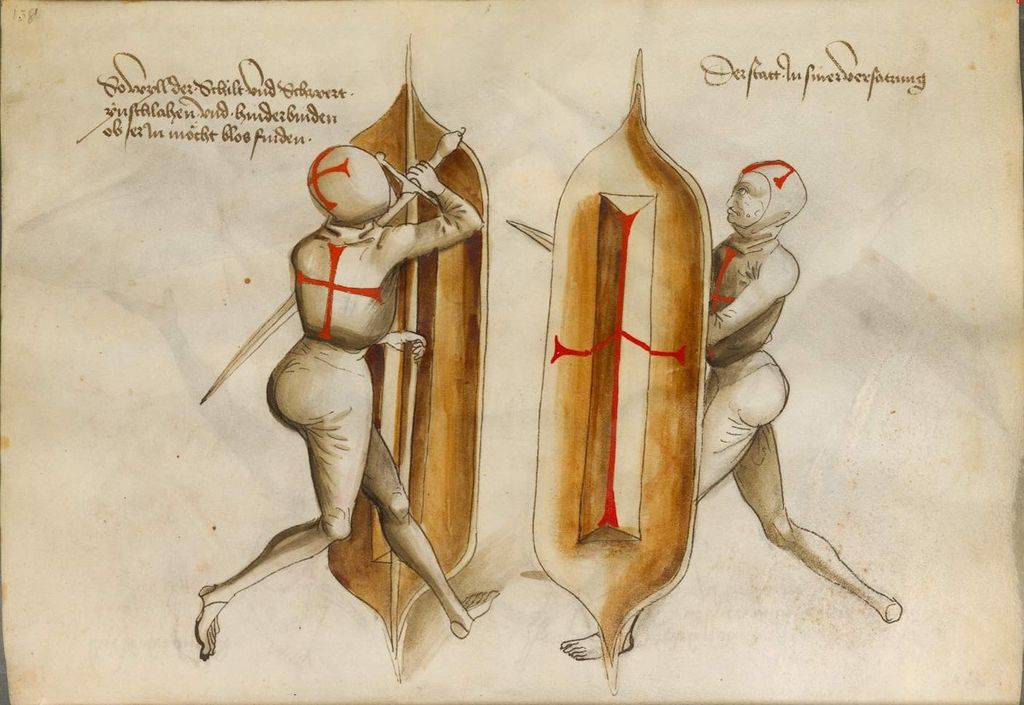 138
So wyll der Schilt und Schwert.
ynschlahen und hinderbinden
ob er In möcht blos finden.
Der statt In siner versatzung